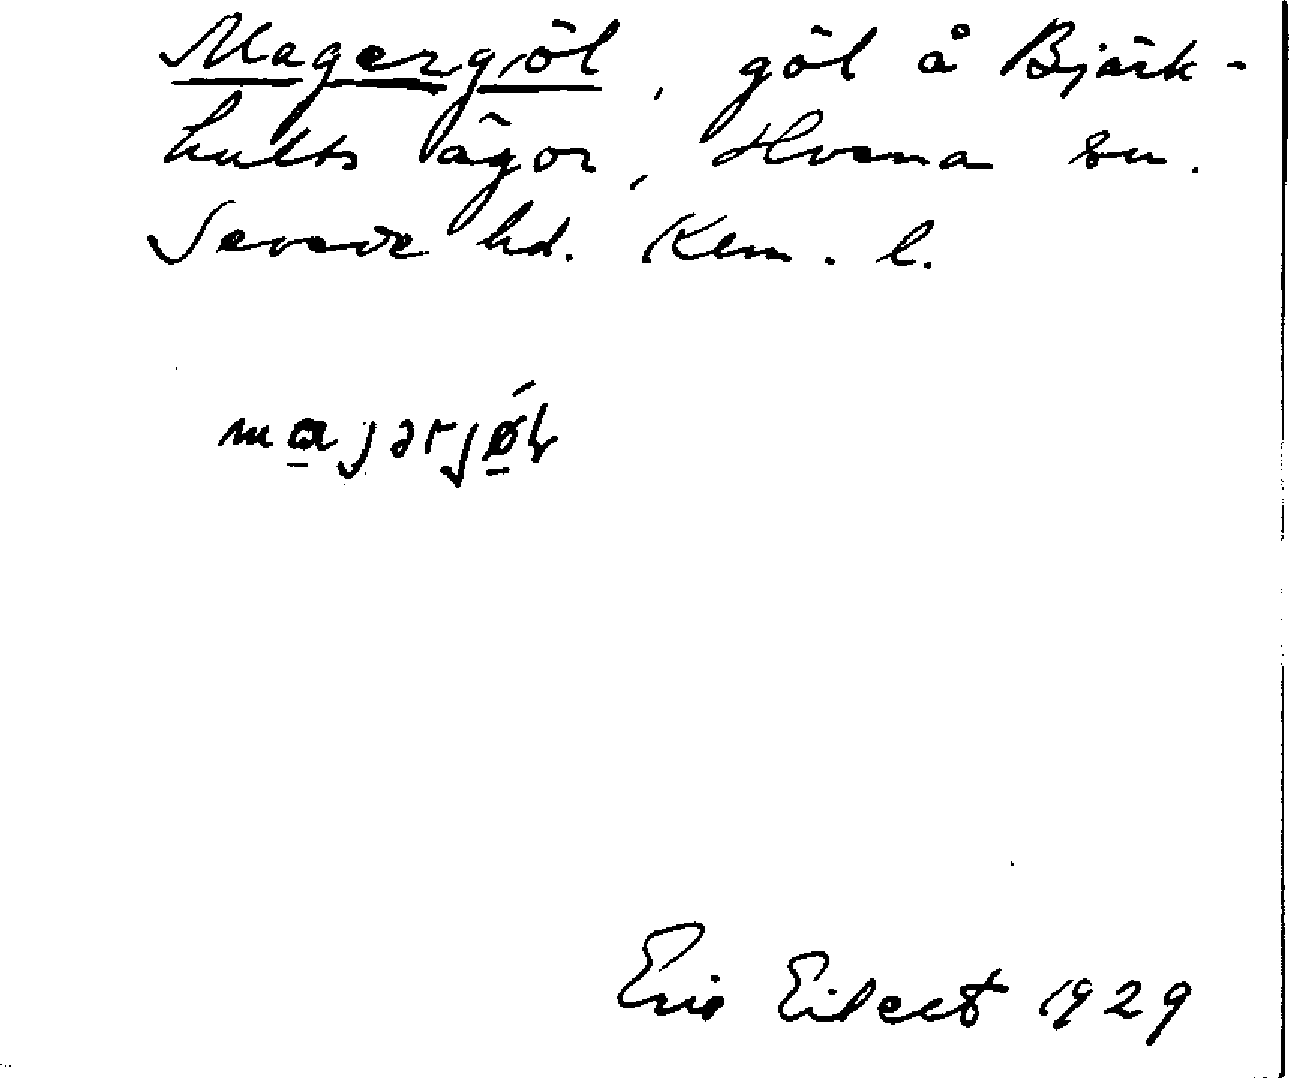 Magergöl, göl å Björk-
hults ägor, Hvena sn.
Sevede hd. Kem. l.
majərjǿ̱l
Eric Eilert 1929